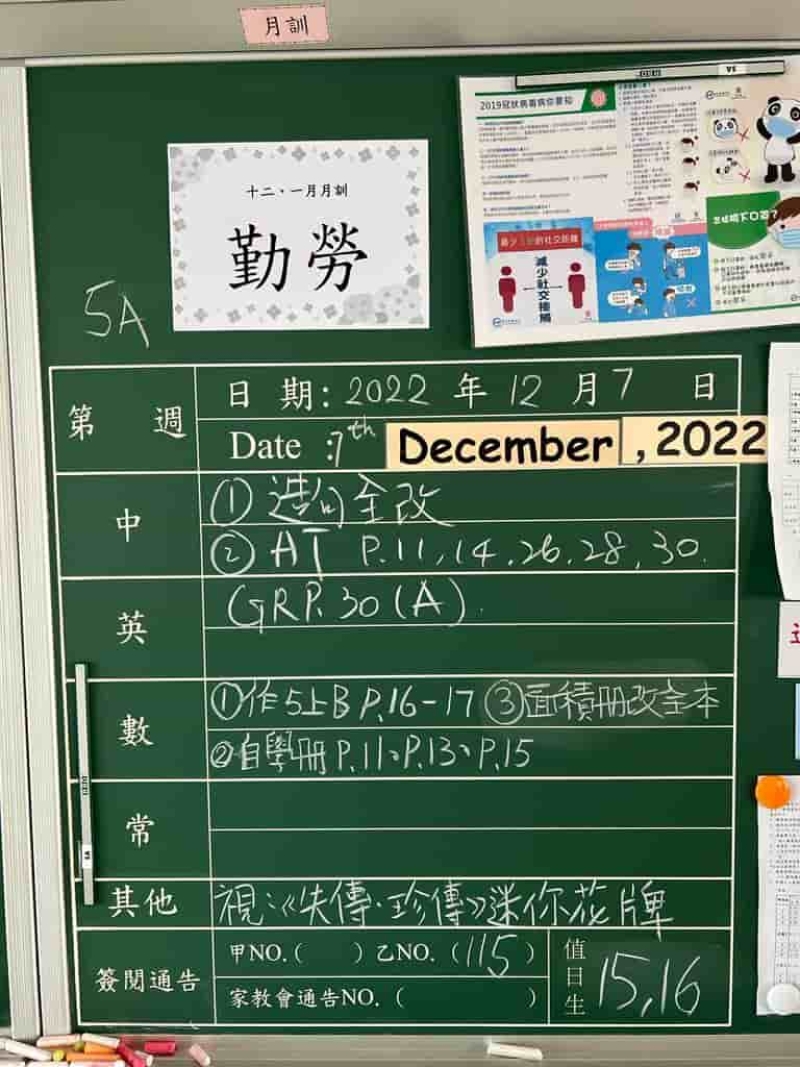 月訓
十二、一月月訓
勤勞
2019冠狀病毒病你要知
減少社交接觸
5A
第 週
日 期: 2022 年 12 月 7 日
Date : 7th December , 2022
中
① 造句全改
② AT P.11, 14, 26, 28, 30.
英
GRP. 30 (A).
數
① 作5上B P.16-17 ③ 面積冊改全本
② 自學冊 P.11、P.13、P.15
常
其他
視:《失傳·珍傳》迷你花牌
簽閱通告
甲NO.( ) 乙NO.(115)
家教會通告NO.( )
值日生
15,16